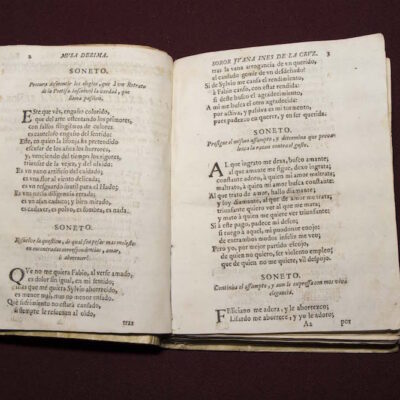 2 MVSA DEZIMA.
SONETO.
Procura desmentir los elogios, que à vn Retrato
de la Poetisa inscribió la verdad, que
llama passion.
ESte que vès, engaño colorido,
que del arte ostentando los primores,
con falsos silogismos de colores
es cauteloso engaño del sentido:
Este, en quien la lisonja ha pretendido
escusar de los años los horrores,
y, venciendo del tiempo los rigores,
triunfar de la vejez, y del olvido:
Es vn vano artificio del cuidado,
es vna flor al viento delicada,
es vn resguardo inutil para el Hado;
Es vna necia diligencia errada,
es vn afan caduco, y bien mirado,
es cadaver, es polvo, es sombra, es nada.
SONETO.
Resuelve la question, de qual sea pesar mas molesto
en encontradas correspondencias, amar,
ò aborrecer?
QVe no me quiera Fabio, al verse amado,
es dolor sin igual, en mi sentido;
mas que me quiera Sylvio aborrecido,
es menor mal, mas no menor enfado.
Què sufrimiento no estarà cansado,
si siempre le resuenan al oìdo,
tras
SOROR JVANA INES DE LA CRVZ. 3
tras la vana arrogancia de vn querido,
el cansado gemir de vn desdeñado?
Si de Sylvio me cansa el rendimiento,
à Fabio canso, con estar rendida:
si deste busco el agradecimiento,
A mi me busca el otro agradecida:
por activa, y passiva es mi tormento,
pues padezco en querer, y en ser querida.
SONETO.
Prosigue el mismo assumpto, y determina que prevalezca
la razon contra el gusto.
AL que ingrato me dexa, busco amante;
al que amante me sigue, dexo ingrata;
constante adoro, à quien mi amor maltrata;
maltrato, à quien mi amor busca constante.
Al que trato de amor, hallo diamante;
y soy diamante, al que de amor me trata;
triunfante quiero ver al que me mata;
y mato à quien me quiere ver triunfante.
Si à este pago, padece mi deseo;
si ruego à aquel, mi pundonor enojo:
de entrambos modos infeliz me veo.
Pero yo, por mejor partido escojo,
de quien no quiero, ser violento empleo;
que de quien no me quiere, vil despojo.
SONETO.
Continùa el assumpto, y aun le expressa con mas viva
elegancia.
FEliciano me adora, y le aborrezco;
Lisardo me aborrece, y yo le adoro;
Aa por